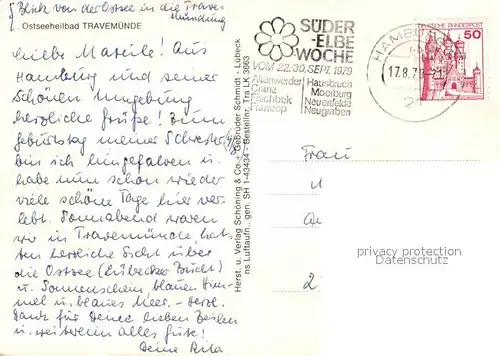 Blick von der Ostsee in die Trave-
mündung
Ostseeheilbad TRAVEMÜNDE
Liebe Mareile! Aus
Hamburg und seiner
Schönen Umgebung
herzliche Grüße! Zum
Geburtstag meiner Schwester
bin ich hingefahren u.
habe nun schon wieder
viele schöne Tage hier ver-
lebt. Sonnabend waren
wir in Travemünde, hat-
ten herrliche Sicht über
die Ostsee (Lübecker Bucht)
u. Sonnenschein blauen Him-
mel u. blaues Meer. - Herzl.
Dank für Deine lieben Zeilen
u. weiterhin alles Gute!
Deine Rita
Herst. u. Verlag Schöning & Co + Gebrüder Schmidt · Lübeck
ns Luftaufn., gen. SH 1-43434 - Bestelln. Tra LK 3663
SÜDER
-ELBE
WOCHE
VOM 22.-30. SEPT. 1979
Altenwerder
Cranz
Fischbek
Francop
Hausbruch
Moorburg
Neuenfelde
Neugraben
HAMBURG
17.8.79
DEUTSCHE BUNDESPOST
50
Frau
privacy protection
Datenschutz
2